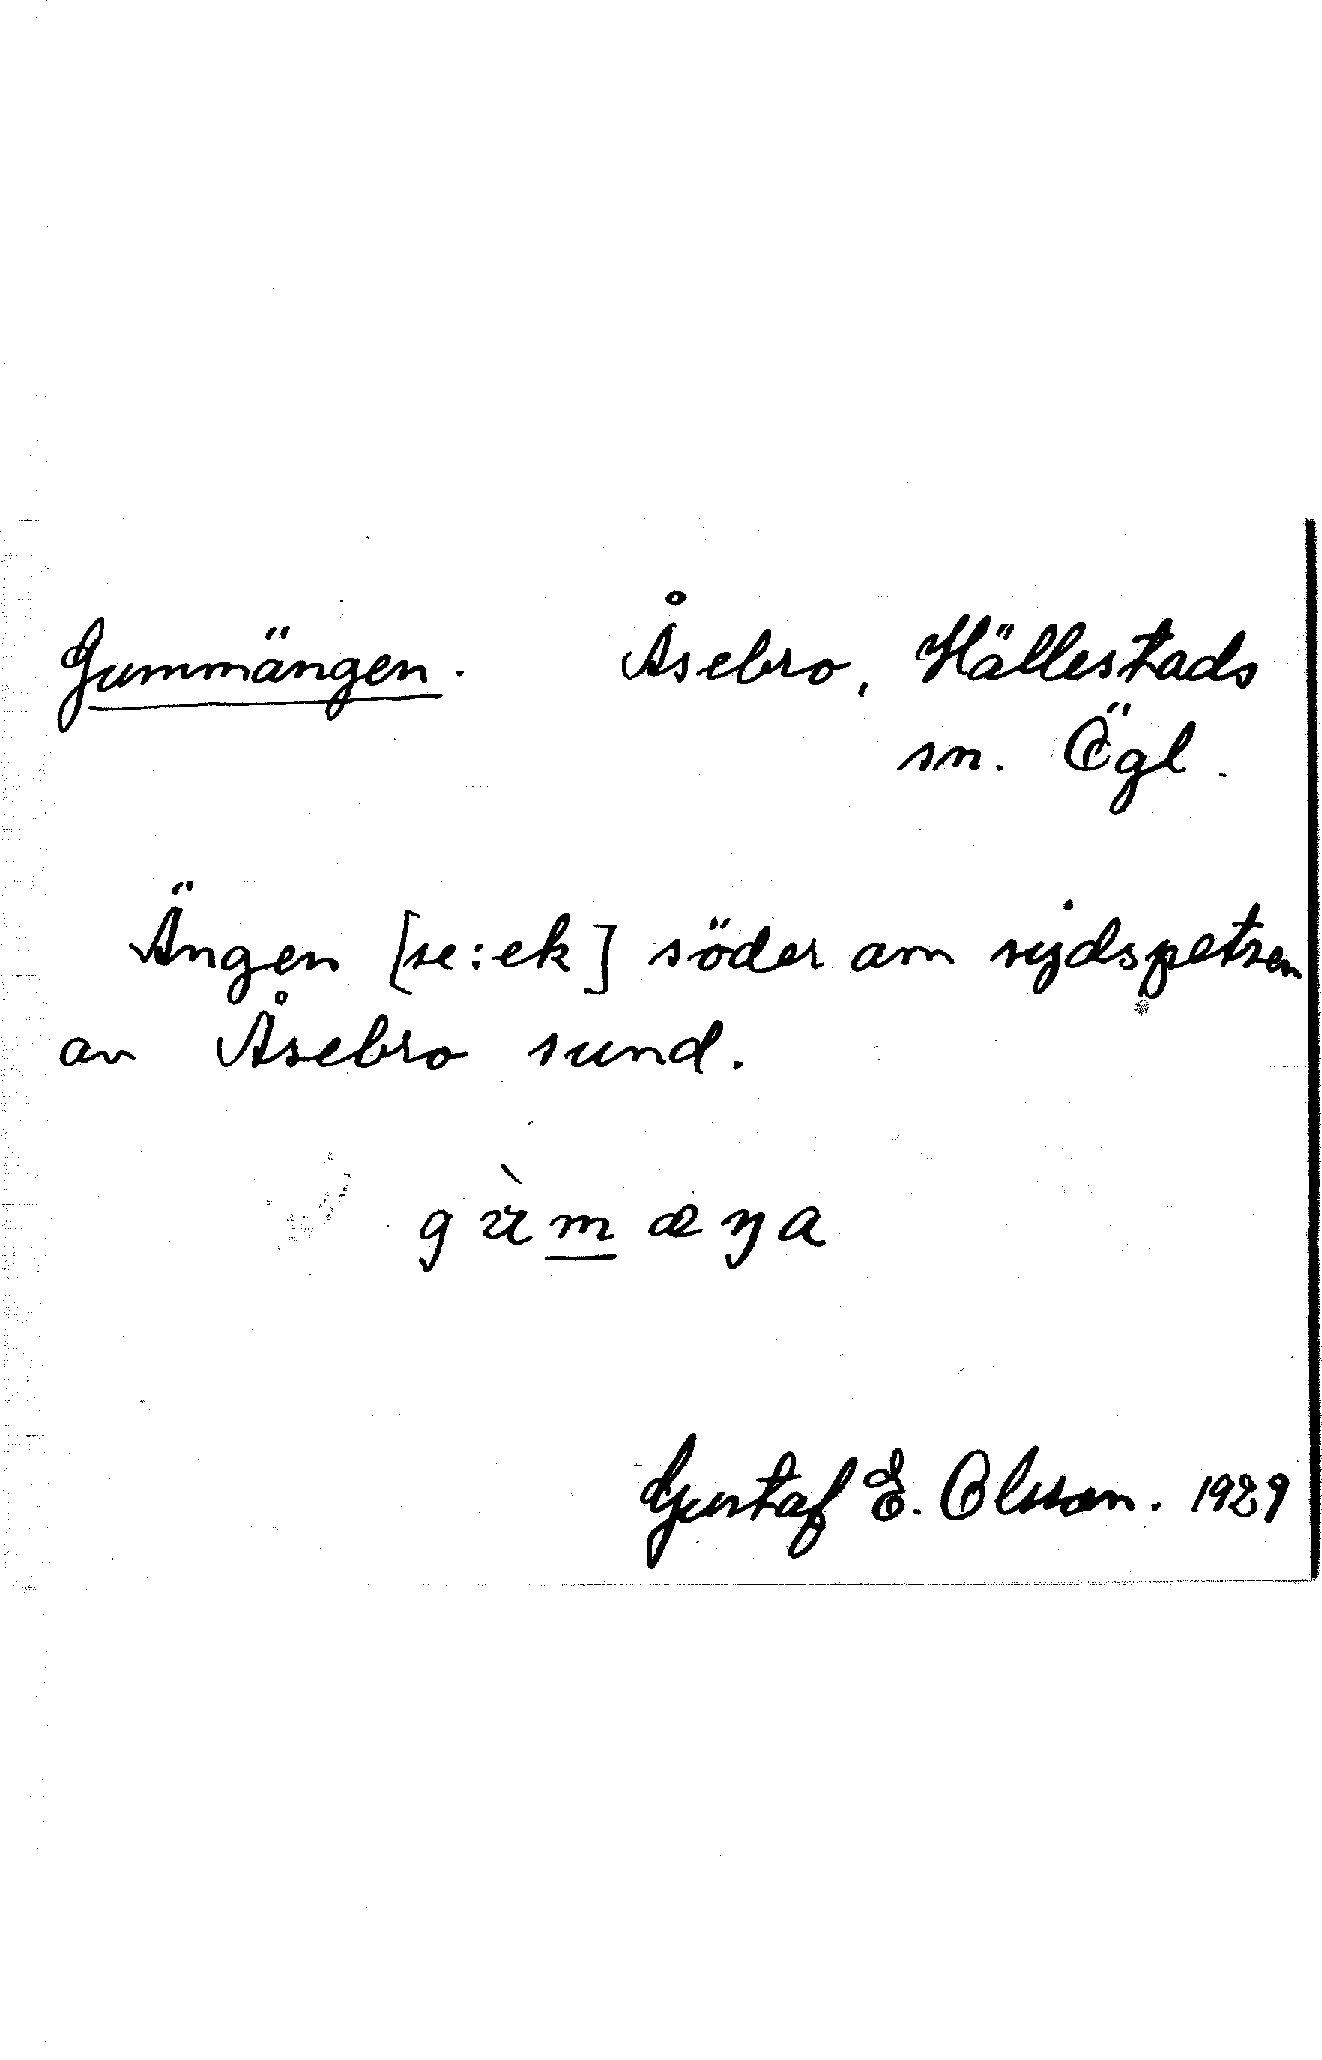 Gummängen. Åsebro, Hällestads
sn. Ögl.
Ängen [se: ek] söder om sydspetsen
av Åsebro sund.
gùmæŋa
Gustaf E. Olsson. 1929